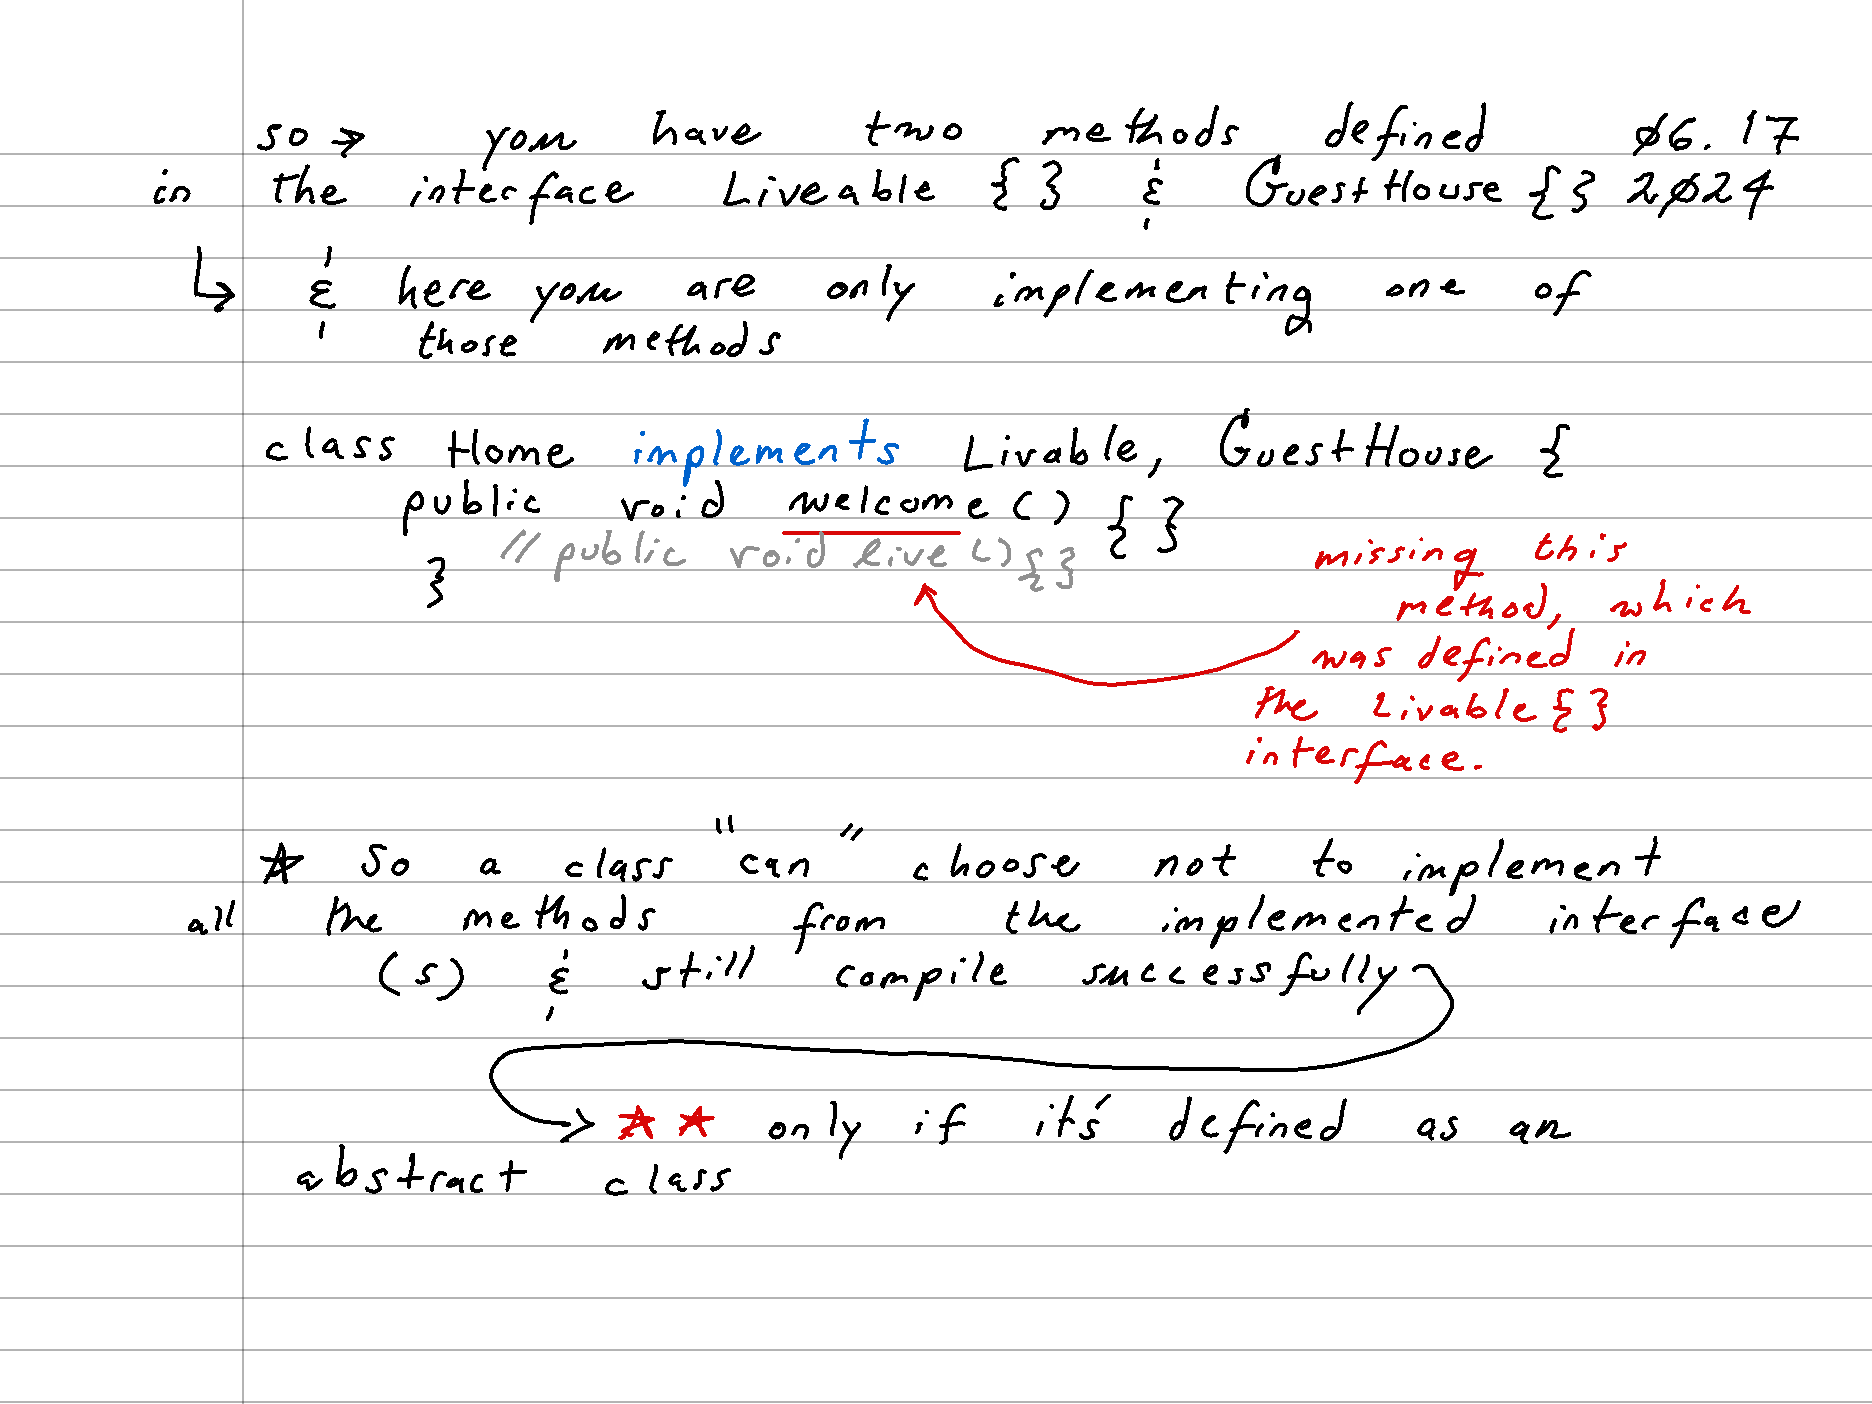 so → you have two methods defined Ø6.17
in the interface Liveable { } & GuestHouse { } 2Ø24
↳ & here you are only implementing one of
those methods
class Home implements Livable, GuestHouse {
public void welcome () { }
// public void live () { }
}
missing this
method, which
was defined in
the Livable { }
interface.
☆ So a class "can" choose not to implement
all the methods from the implemented interface
(s) & still compile successfully
→ ☆☆ only if it's defined as an
abstract class